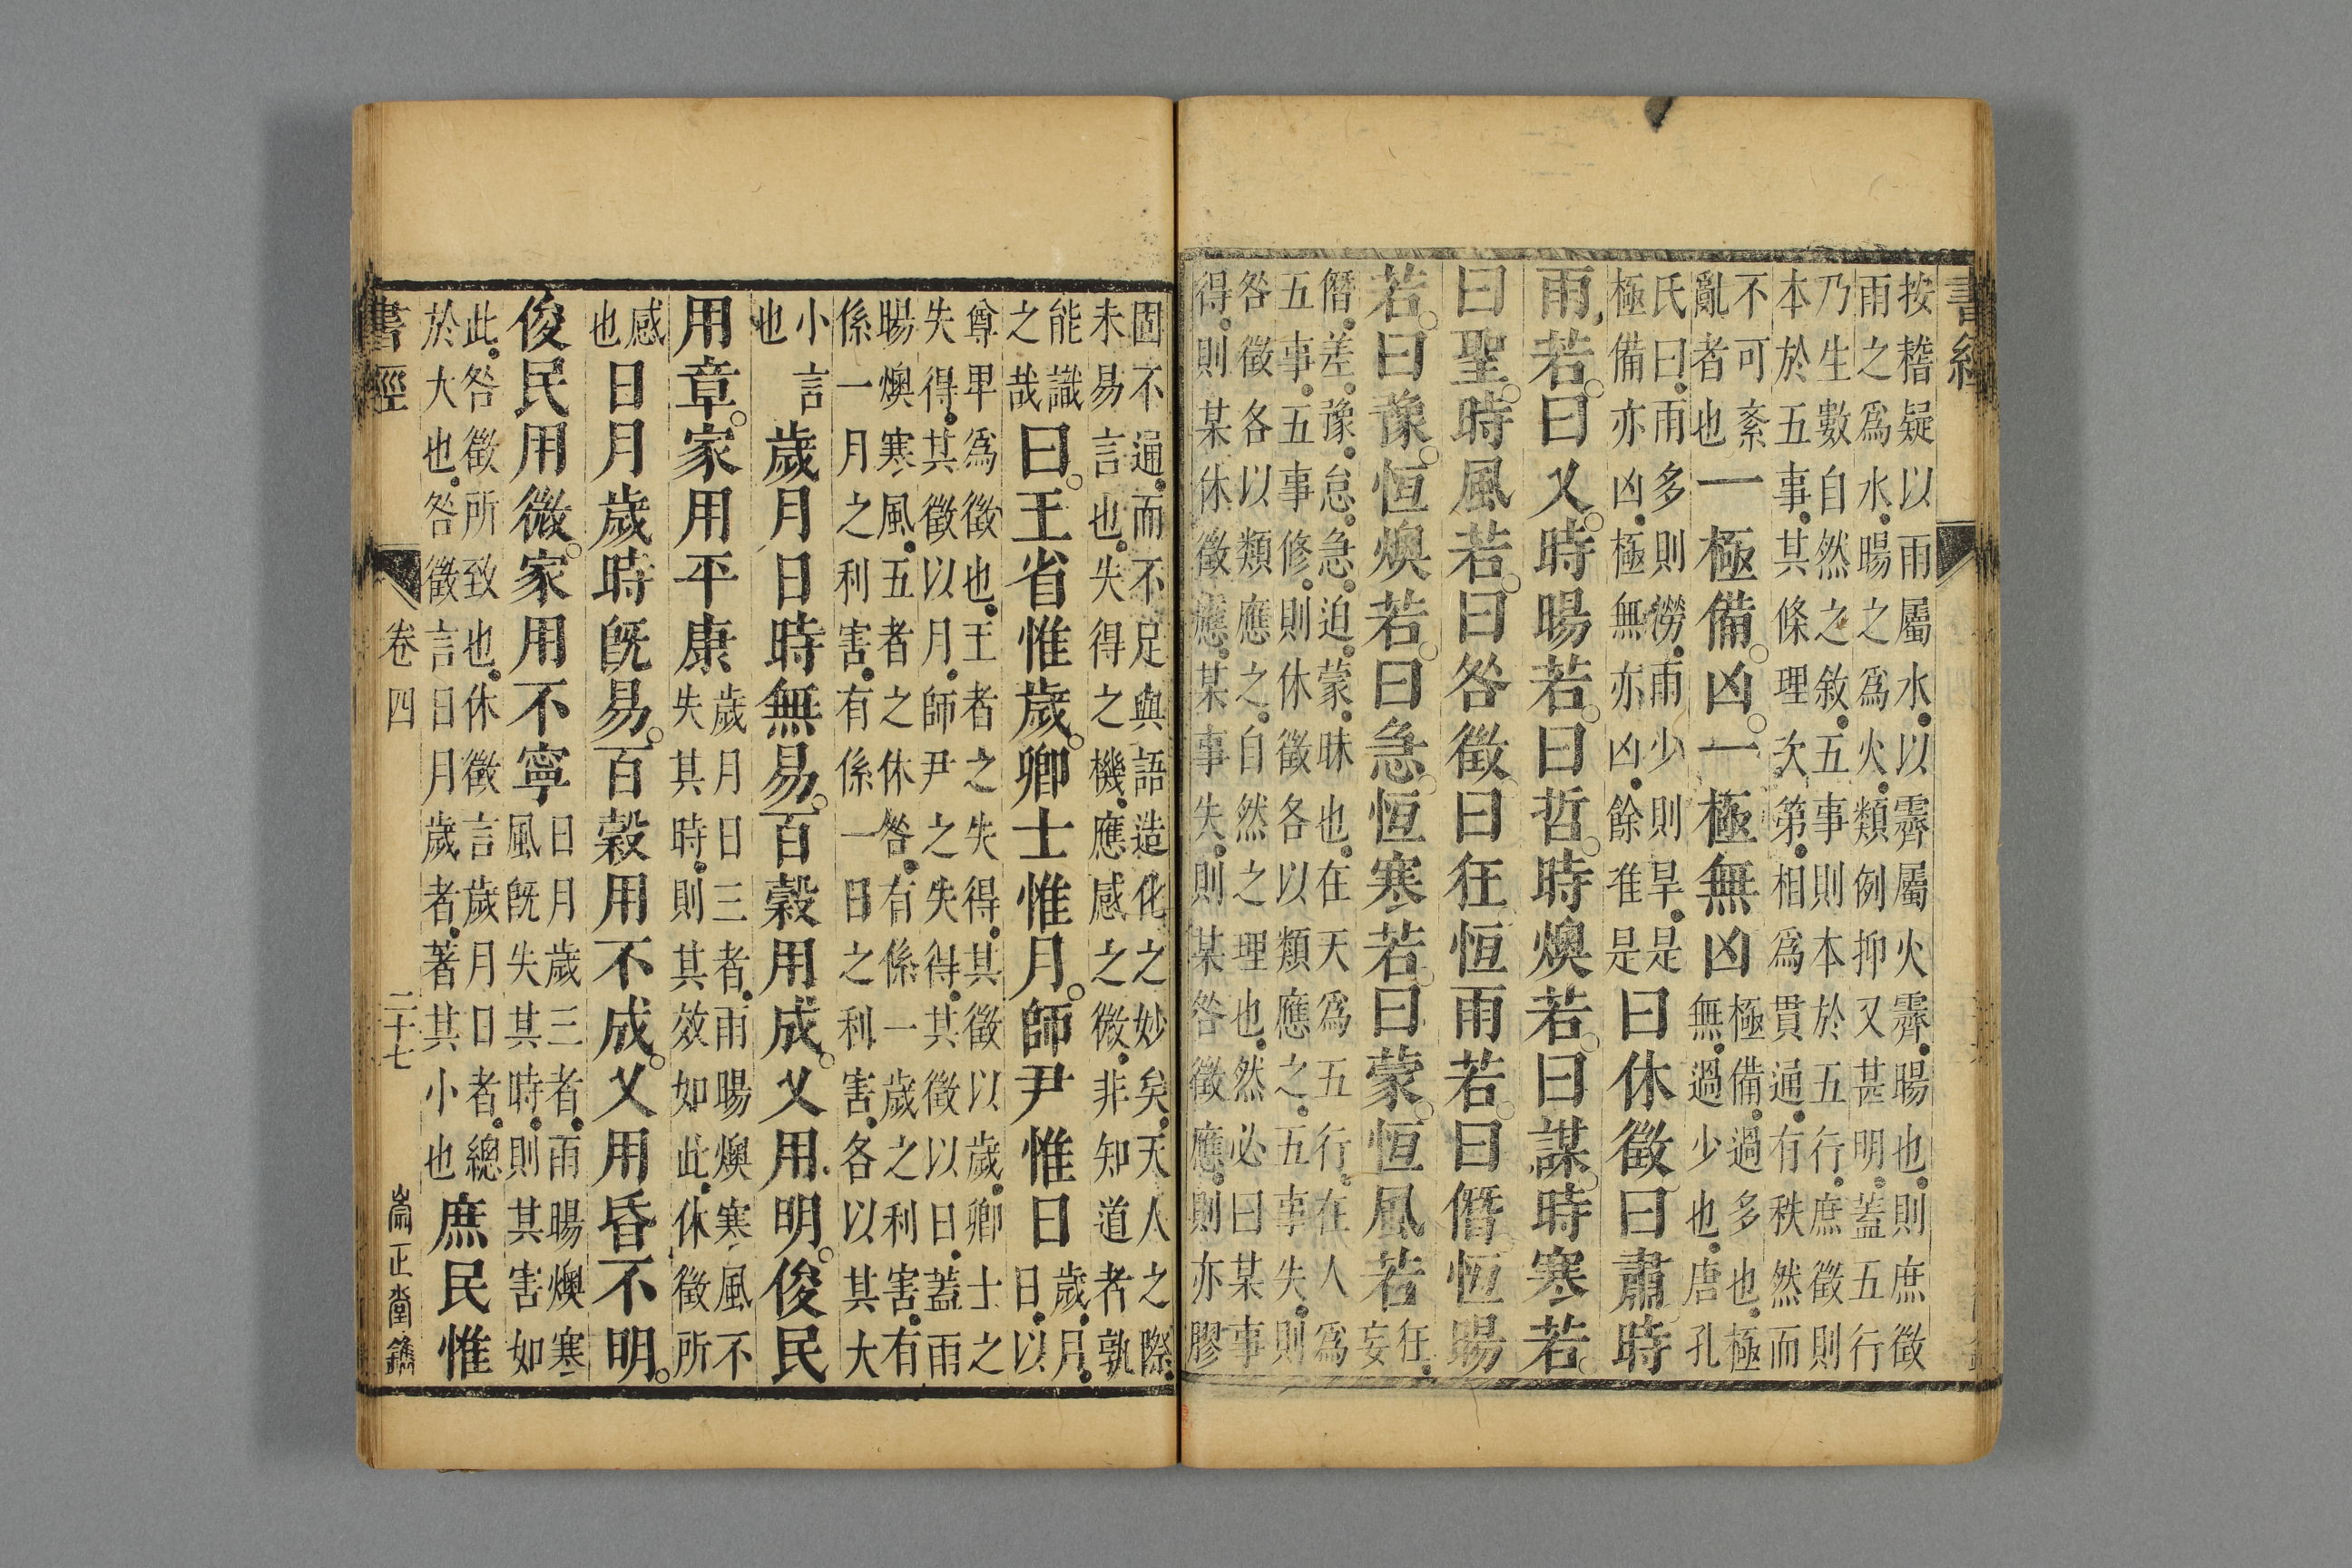 書經
按稽疑以雨屬水以霽屬火霽暘也則庶徵
雨之爲水暘之爲火類例抑又甚明蓋五行
乃生數自然之敘五事則本於五行庶徵則
本於五事其條理次第相爲貫通有秩然而
不可紊
亂者也
一極備凶一極無凶
極備過多也極
無過少也唐孔
氏曰雨多則澇雨少則旱是
極備亦凶極無亦凶餘准是
曰休徵曰肅時
雨若曰乂時暘若曰哲時燠若曰謀時寒若
曰聖時風若曰咎徵曰狂恒雨若曰僭恒暘
若曰豫恒燠若曰急恒寒若曰蒙恒風若
狂
妄
僭差豫怠急迫蒙昧也在天爲五行在人爲
五事五事修則休徵各以類應之五事失則
咎徵各以類應之自然之理也然必曰某事
得則某休徵應某事失則某咎徵應則亦膠
固不通而不足與語造化之妙矣天人之際
未易言也失得之機應感之微非知道者孰
能識
之哉
曰王省惟歲卿士惟月師尹惟日
歲月
日以
尊卑爲徵也王者之失得其徵以歲卿士之
失得其徵以月師尹之失得其徵以日蓋雨
暘燠寒風五者之休咎有係一歲之利害有
係一月之利害有係一日之利害各以其大
小言
也
歲月日時無易百穀用成乂用明俊民
用章家用平康
歲月日三者雨暘燠寒風不
失其時則其效如此休徵所
感
也
日月歲時旣易百穀用不成乂用昏不明
俊民用微家用不寧
日月歲三者雨暘燠寒
風旣失其時則其害如
此咎徵所致也休徵言歲月日者總
於大也咎徵言日月歲者著其小也
庶民惟
書經 卷四 二十七 崇正堂鐫